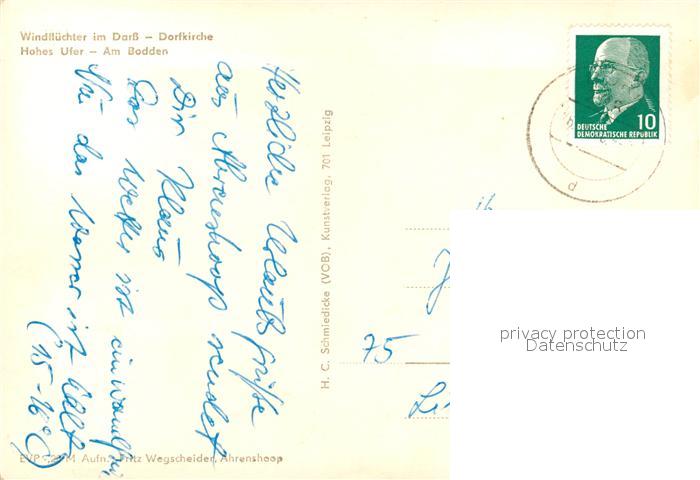 Windflüchter im Darß – Dorfkirche
Hohes Ufer – Am Bodden
Herzliche Urlaubsgrüße
aus Ahrenshoop sendet
Dir Klaus
Das Wetter ist einwandfrei
Nur das Wasser ist kalt
(15-16°C)
EVP Aufn.: Fritz Wegscheider, Ahrenshoop
H. C. Schmiedicke (VOB), Kunstverlag, 701 Leipzig
10
DEUTSCHE
DEMOKRATISCHE REPUBLIK
75
privacy protection
Datenschutz